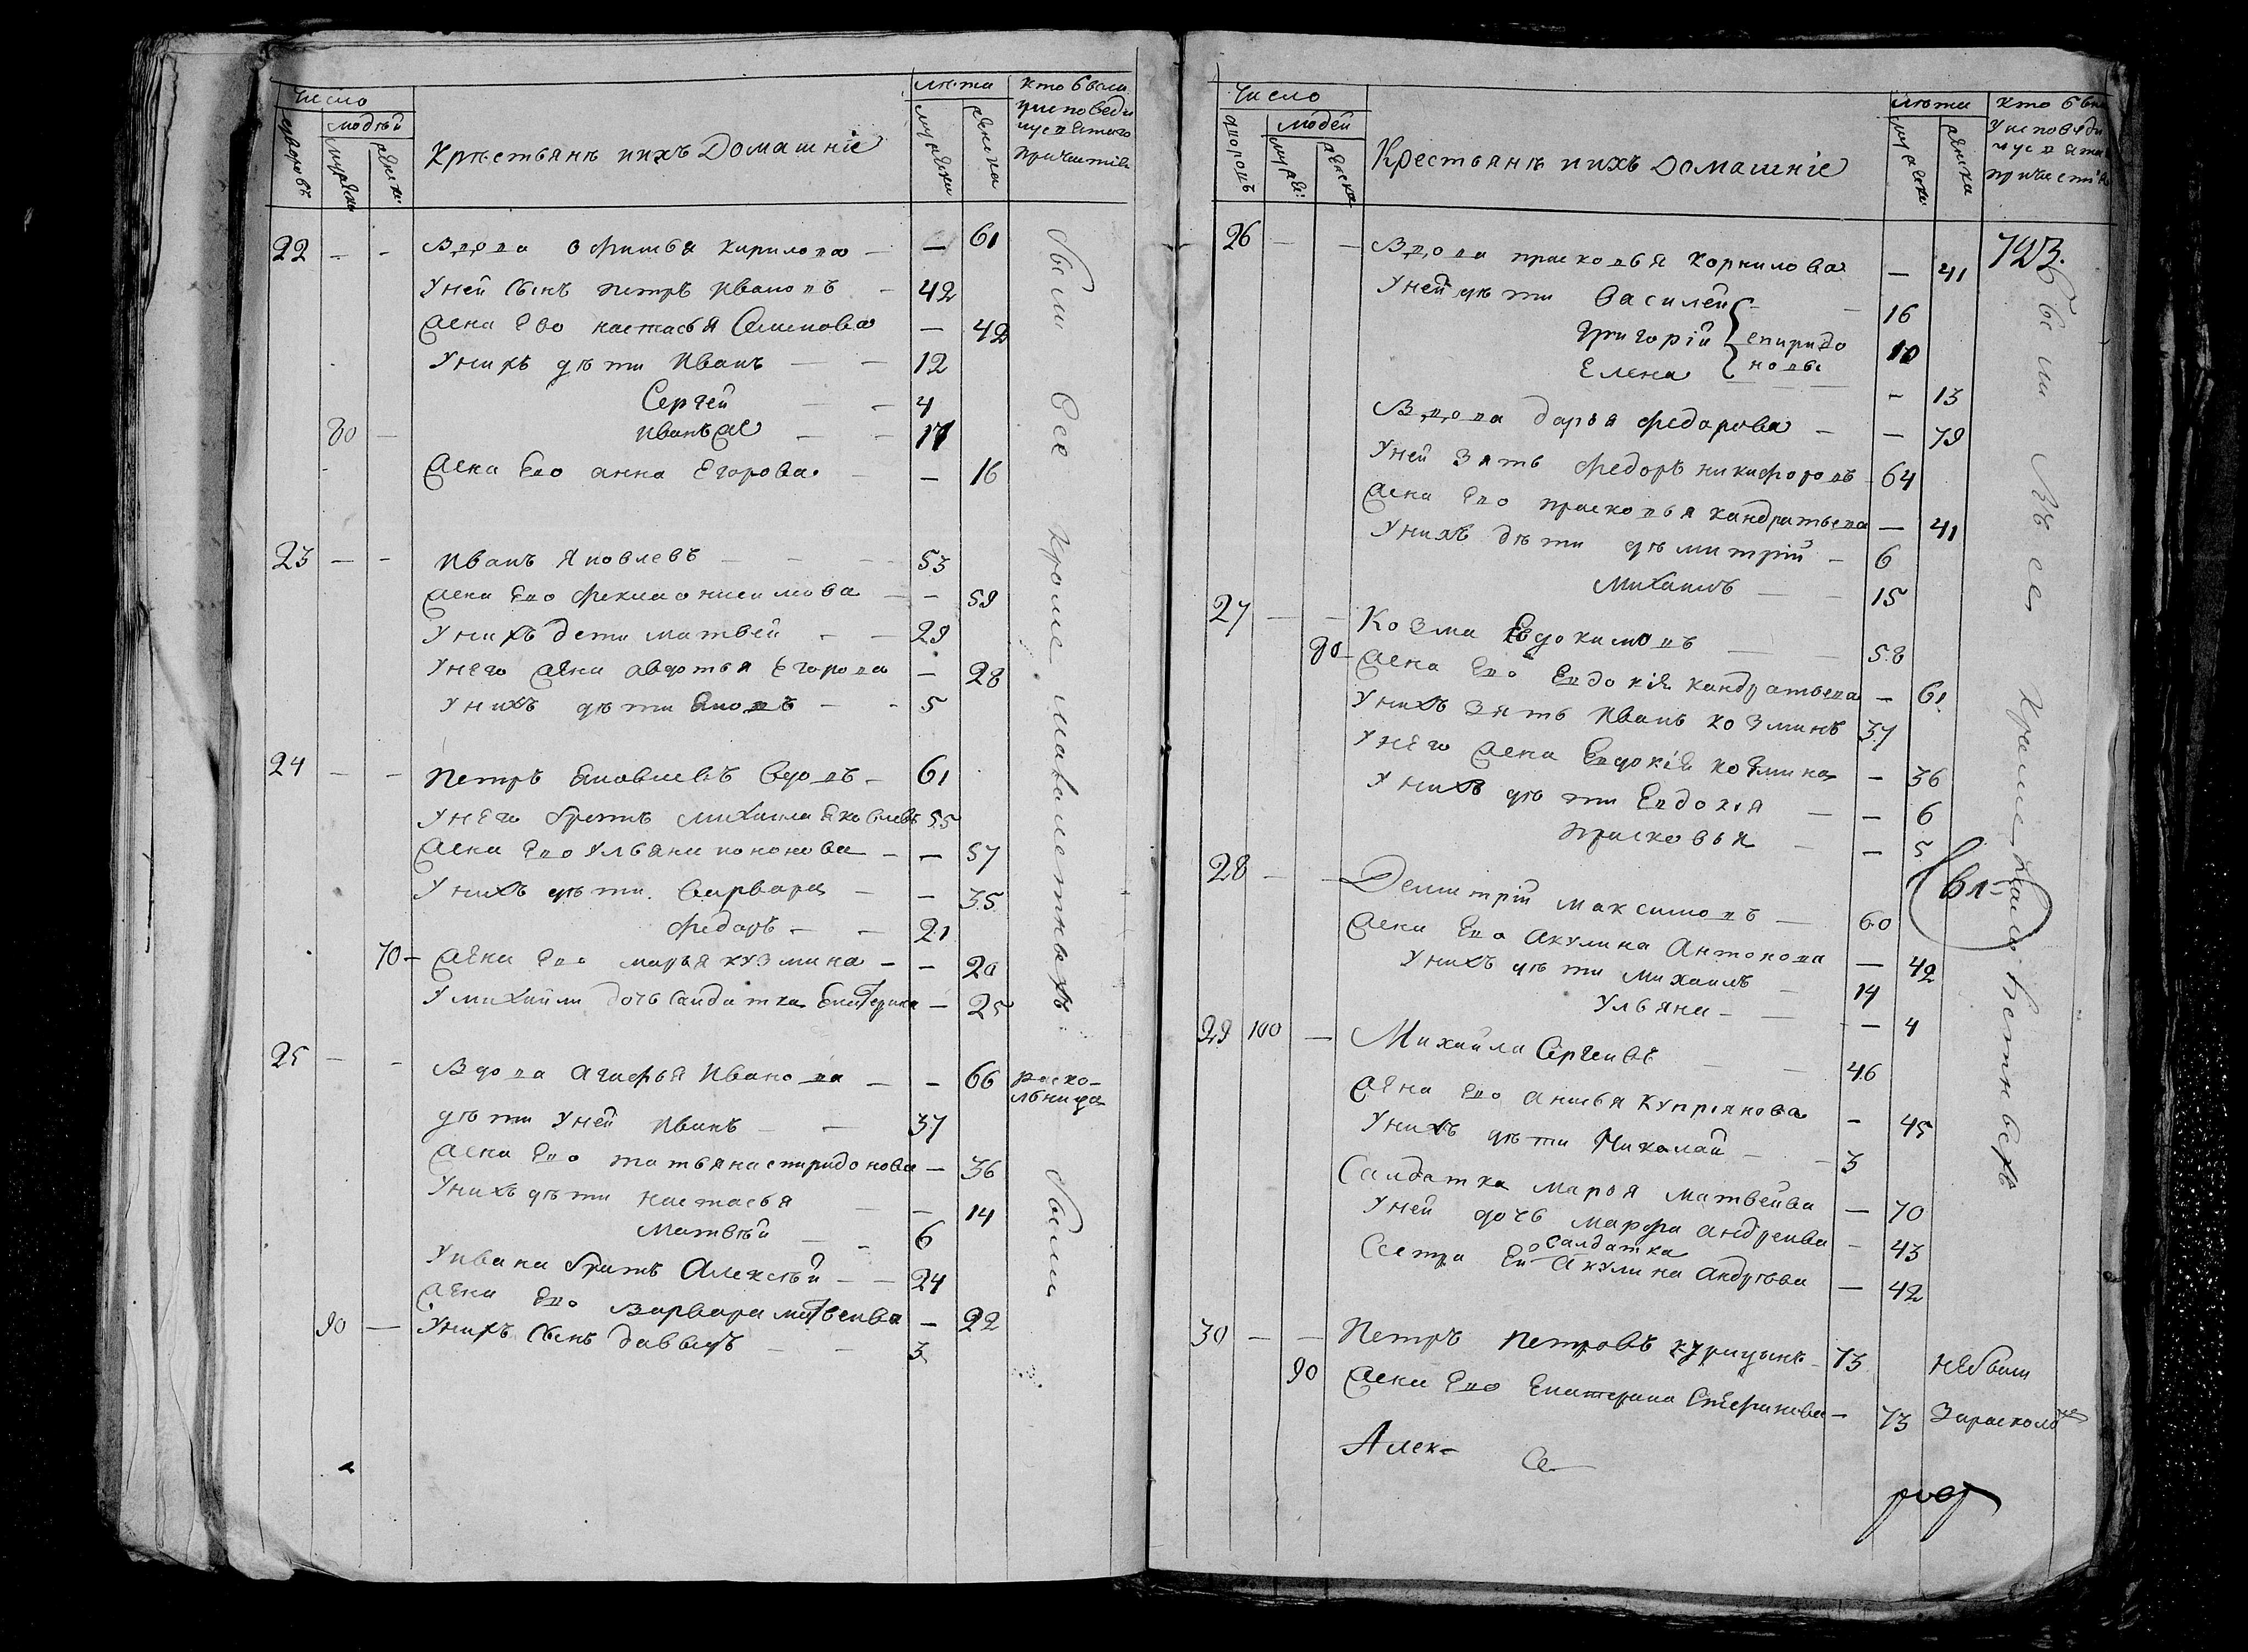 Число
людей
дворовъ
мужеск
женск:
Крѣстьянѣ ихъ Домашніе
лѣта
мужски
женски
кто были
у исповеди
и святаго
причастия
22 - - Вдова Офимья Кирилова - - 61
У ней сынъ Петръ Ивановъ - 42
Жена Ево Настасья Семенова - 42
У нихъ дѣти Иванъ - - 12
Сергей - - 4
80 - Иванъ же - - 17
Жена Ево Анна Егорова - - 16
23 - - Иванъ Яковлевъ - - 53
Жена Ево Фекла Онисимова - - 59
У нихъ дети Матвей - - 29
У него Жена Авдотья Егорова - 28
У нихъ дѣти Яковъ - - 5
24 - - Петръ Яковлевъ Вдовъ - 61
У него братъ Михаила Яковлевъ 55
Жена Ево Ульяна Кононова - - 57
У нихъ дѣти Варвара - - 35
Федоръ - - 21
70 - Жена Ево Марья Кузмина - - 20
У Михайлы дочь Салдатка Екатерина - 25
25 - - Вдова Агафья Иванова - - 66 раско-
льница
дѣти У ней Иванъ - - 37
Жена Ево Татьяна Спиридонова - 36
У нихъ дѣти Настасья - - 14
Матвѣй - - 6
У Ивана братъ Алексѣй - - 24
Жена Ево Варвара Матвеива - 22
90 - У нихъ Сынъ Давыдъ - - 3
были Все кроме малалетныхъ были
Число
людей
дворовъ
мужес:
женска
Крестьянѣ ихъ Домашніе
лѣта
мужеск:
женски
кто были
у исповѣди
и святаго
причастія
723.
26 - - Вдова Прасковья Корнилова - 41
У ней дѣти Василей - - 16
Григорій Спиридо 10
Елена новы - 13
Вдова Дарья Федорова - - 79
У ней Зять Федоръ Никифоровъ 64
Жена Ево Прасковья Кандратьева - 41
У нихъ дѣти Дѣмитрій - 6
Михаилъ - - 15
27 - - Козма Евдокимовъ - - 58
80 - Жена Ево Евдокія Кандратьева - 61
У нихъ Зять Иванъ Козминъ 37
У него Жена Евдокія Козмина - 36
У нихъ дѣти Евдокія - - 6
Прасковья - - 5
28 - - Демитрій Максимовъ - 60
Жена Ево Акулина Антонова - 42
У нихъ дѣти Михаилъ - 14
Ульяна - - - 4
29 100 - Михайла Сергеивъ - - 46
Жена Ево Анисья Купріянова - 45
У нихъ дѣти Николай - - 3
Салдатка Марья Матвейва - 70
У ней дочь Марфа Андреива - 43
Салдатка
Сестра Ей Акулина Андрѣева - 42
30 - - Петръ Петровъ Курицынъ - 73 не были
90 Жена Ево Екатерина - 73 За расколо
были Все Кроме
Алек-